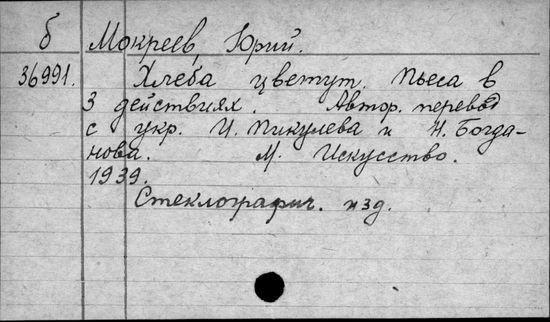 б Мокреев, Юрий.
36991. Хлеба цветут. Пьеса в
3 действиях. Автор. перевод
с укр. И. Пикулева и Н. Богда-
нова. М. Искусство.
1939.
Стеклографич. изд.